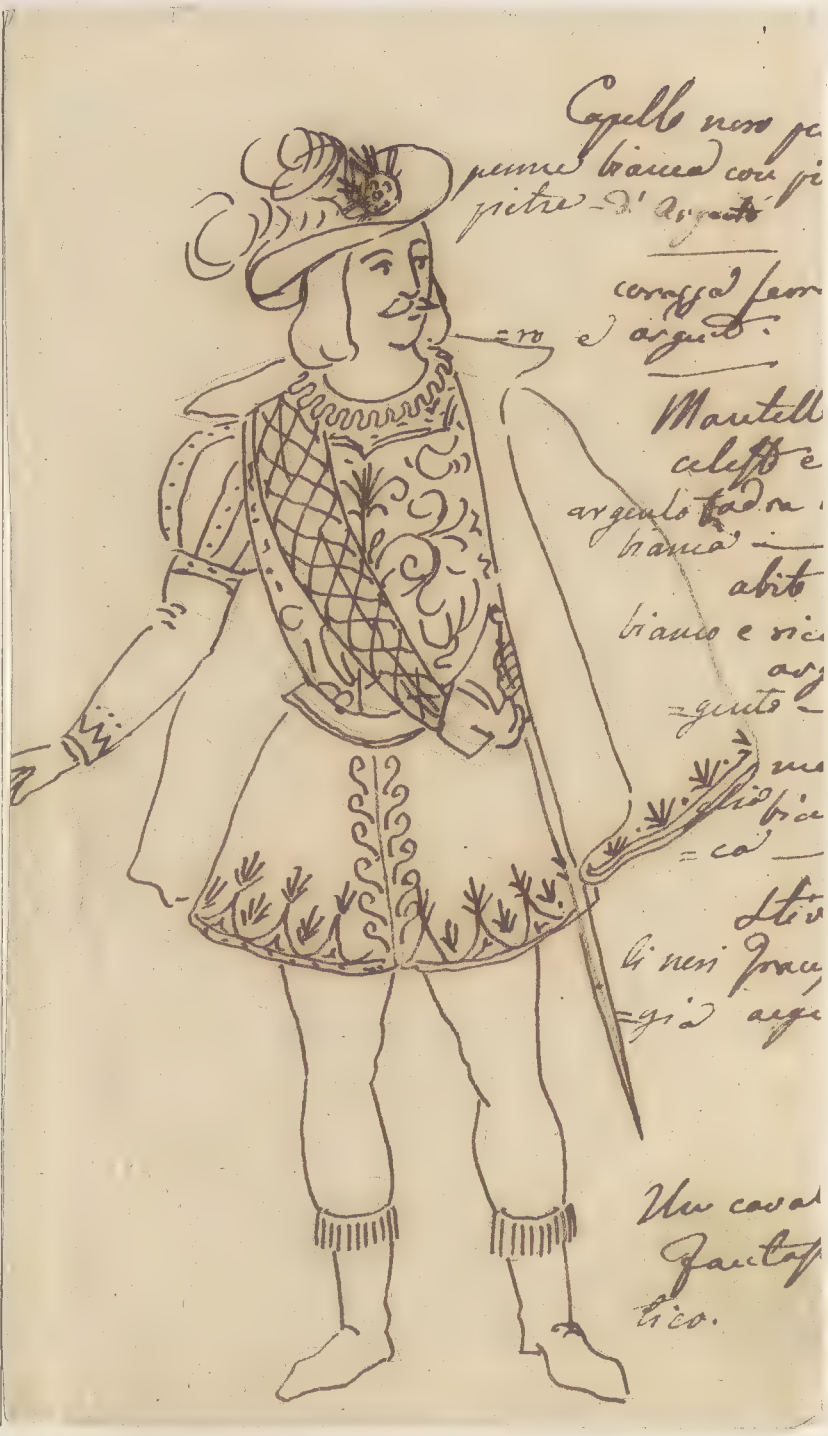 Capello nero pe
penne bianca con pi
pietre d'argento
corazza ferr
=ro e argent.
Mantell
celeste
argento fadra
bianca
abito
bianco e ric
arg
=gento
ma
glia bia
=ca
Stiv
li neri frang
=gia arge
Un caval
fantas
tico.